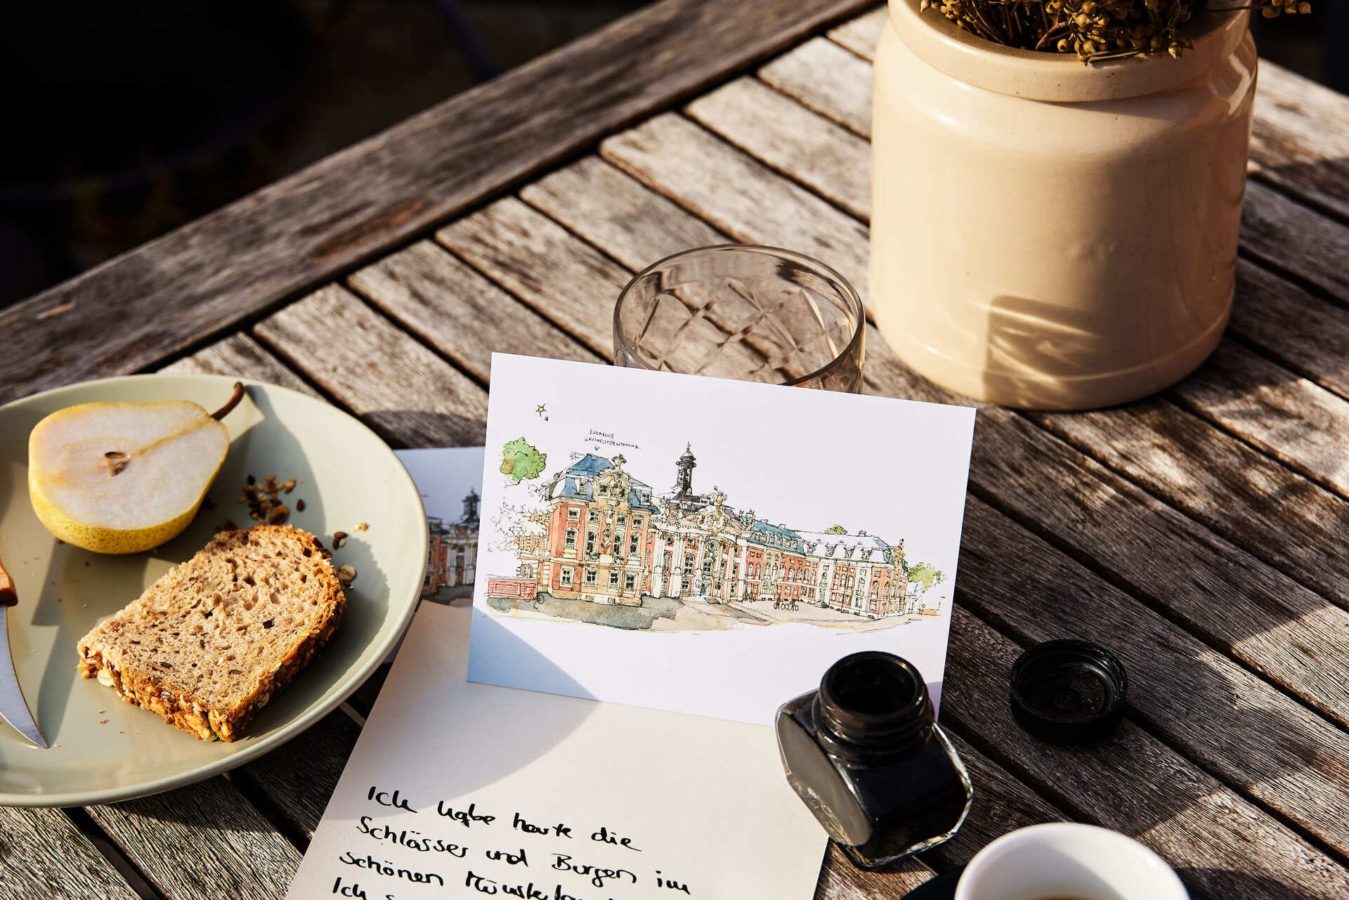 Ich habe heute die
Schlösser und Burgen im
schönen Münsterland
Ich